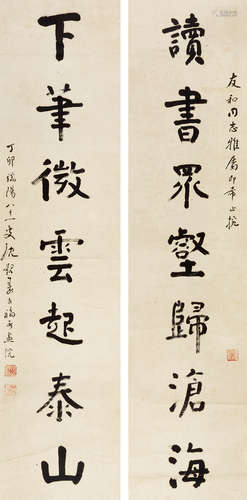 友和同志雅屬即希正
讀書眾壑歸滄海
下筆微雲起泰山
丁卯端陽八十一叟沈覲壽書於福州畫院